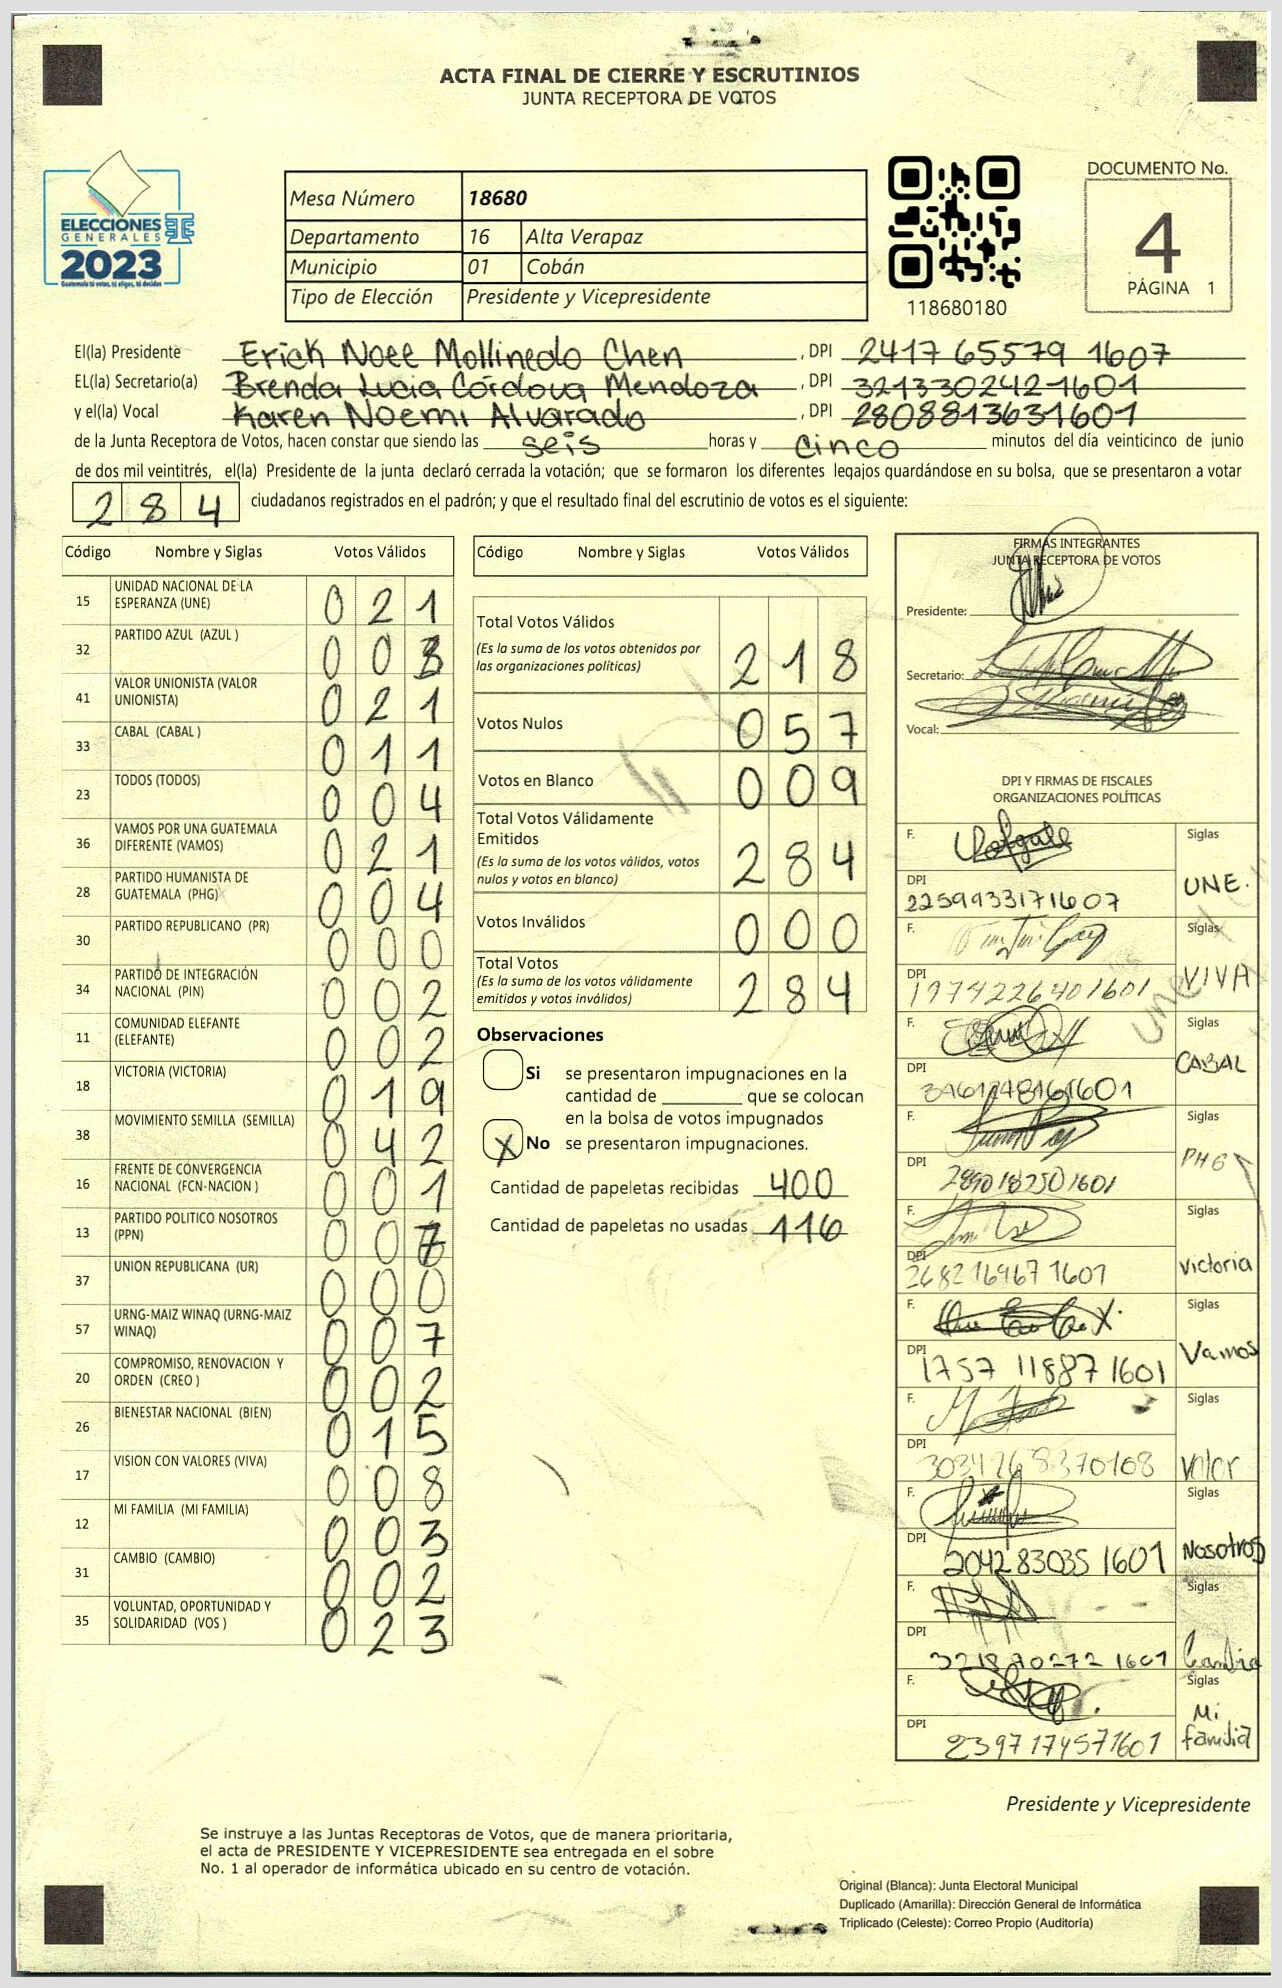 ACTA FINAL DE CIERRE Y ESCRUTINIOS
JUNTA RECEPTORA DE VOTOS
ELECCIONES
GENERALES
2023
Guatemala tú votas, tú eliges, tú decides
Mesa Número 18680
Departamento 16 Alta Verapaz
Municipio 01 Cobán
Tipo de Elección Presidente y Vicepresidente
118680180
DOCUMENTO No.
4
PÁGINA 1
El(la) Presidente Erick Noee Mollinedo Chen , DPI 2417 65579 1607
EL(la) Secretario(a) Brenda Lucia Córdova Mendoza , DPI 3213302421601
y el(la) Vocal Karen Noemi Alvarado , DPI 2808813631601
de la Junta Receptora de Votos, hacen constar que siendo las seis horas y cinco minutos del día veinticinco de junio
de dos mil veintitrés, el(la) Presidente de la junta declaró cerrada la votación; que se formaron los diferentes legajos guardándose en su bolsa, que se presentaron a votar
284 ciudadanos registrados en el padrón; y que el resultado final del escrutinio de votos es el siguiente:
Código Nombre y Siglas Votos Válidos
15 UNIDAD NACIONAL DE LA ESPERANZA (UNE) 021
32 PARTIDO AZUL (AZUL ) 003
41 VALOR UNIONISTA (VALOR UNIONISTA) 021
33 CABAL (CABAL ) 011
23 TODOS (TODOS) 004
36 VAMOS POR UNA GUATEMALA DIFERENTE (VAMOS) 021
28 PARTIDO HUMANISTA DE GUATEMALA (PHG) 004
30 PARTIDO REPUBLICANO (PR) 000
34 PARTIDO DE INTEGRACIÓN NACIONAL (PIN) 002
11 COMUNIDAD ELEFANTE (ELEFANTE) 002
18 VICTORIA (VICTORIA) 019
38 MOVIMIENTO SEMILLA (SEMILLA) 042
16 FRENTE DE CONVERGENCIA NACIONAL (FCN-NACION ) 001
13 PARTIDO POLITICO NOSOTROS (PPN) 007
37 UNION REPUBLICANA (UR) 000
57 URNG-MAIZ WINAQ (URNG-MAIZ WINAQ) 007
20 COMPROMISO, RENOVACION Y ORDEN (CREO ) 002
26 BIENESTAR NACIONAL (BIEN) 015
17 VISION CON VALORES (VIVA) 008
12 MI FAMILIA (MI FAMILIA) 003
31 CAMBIO (CAMBIO) 002
35 VOLUNTAD, OPORTUNIDAD Y SOLIDARIDAD (VOS ) 023
Código Nombre y Siglas Votos Válidos
Total Votos Válidos
(Es la suma de los votos obtenidos por
las organizaciones políticas) 218
Votos Nulos 057
Votos en Blanco 009
Total Votos Válidamente
Emitidos
(Es la suma de los votos válidos, votos
nulos y votos en blanco) 284
Votos Inválidos 000
Total Votos
(Es la suma de los votos válidamente
emitidos y votos inválidos) 284
Observaciones
Si se presentaron impugnaciones en la
cantidad de ________ que se colocan
en la bolsa de votos impugnados
X No se presentaron impugnaciones.
Cantidad de papeletas recibidas 400
Cantidad de papeletas no usadas 116
FIRMAS INTEGRANTES
JUNTA RECEPTORA DE VOTOS
Presidente:
Secretario:
Vocal:
DPI Y FIRMAS DE FISCALES
ORGANIZACIONES POLÍTICAS
F. Siglas
DPI 2259933171607 UNE.
F. Siglas
DPI 1974226401601 VIVA
F. Siglas
DPI CABAL
F. Siglas
DPI PHG
F. Siglas
DPI 2682169671601 Victoria
F. Siglas
DPI 1757 118871601 Vamos
F. Siglas
DPI 3034268370108 Valor
F. Siglas
DPI 2042830351601 Nosotros
F. Siglas
DPI Cambio
F. Siglas
DPI 2397174571601 Mi familia
Presidente y Vicepresidente
Se instruye a las Juntas Receptoras de Votos, que de manera prioritaria,
el acta de PRESIDENTE Y VICEPRESIDENTE sea entregada en el sobre
No. 1 al operador de informática ubicado en su centro de votación.
Original (Blanca): Junta Electoral Municipal
Duplicado (Amarilla): Dirección General de Informática
Triplicado (Celeste): Correo Propio (Auditoría)